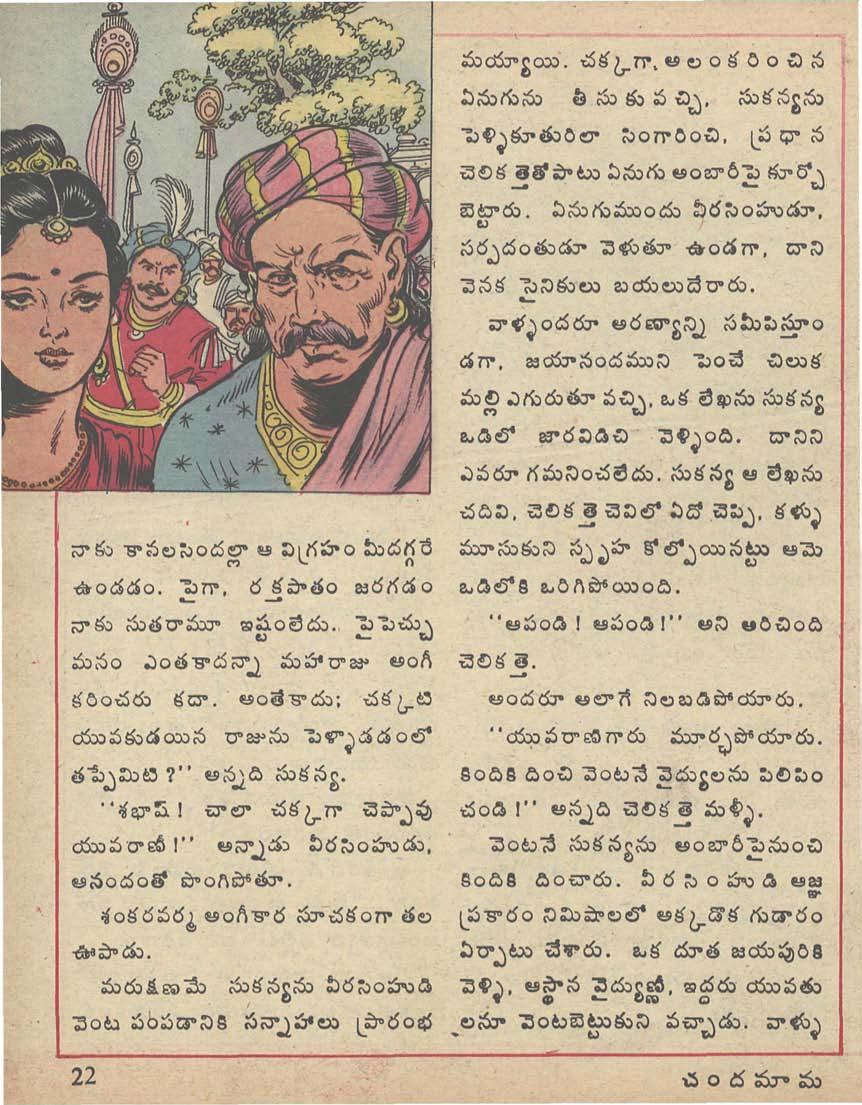 నాకు కానలసిందల్లా ఆ విగ్రహం మీదగ్గరే
ఉండడం. పైగా, రక్తపాతం జరగడం
నాకు సుతరామూ ఇష్టంలేదు. పైపెచ్చు
మనం ఎంతకాదన్నా మహారాజు అంగీ
కరించరు కదా. అంతేకాదు; చక్కటి
యువకుడయిన రాజును పెళ్ళాడడంలో
తప్పేమిటి?'' అన్నది సుకన్య.
''శభాష్! చాలా చక్కగా చెప్పావు
యువరాణీ!'' అన్నాడు వీరసింహుడు,
ఆనందంతో పొంగిపోతూ.
శంకరవర్మ అంగీకార సూచకంగా తల
ఊపాడు.
మరుక్షణమే సుకన్యను వీరసింహుడి
వెంట పంపడానికి సన్నాహాలు ప్రారంభ
మయ్యాయి. చక్కగా, అలంకరించిన
ఏనుగును తీసుకువచ్చి, సుకన్యను
పెళ్ళికూతురిలా సింగారించి, ప్రధాన
చెలికత్తెతోపాటు ఏనుగు అంబారీపై కూర్చో
బెట్టారు. ఏనుగుముందు వీరసింహుడూ,
సర్పదంతుడూ వెళుతూ ఉండగా, దాని
వెనక సైనికులు బయలుదేరారు.
వాళ్ళందరూ అరణ్యాన్ని సమీపిస్తూం
డగా, జయానందముని పెంచే చిలుక
మల్లి ఎగురుతూ వచ్చి, ఒక లేఖను సుకన్య
ఒడిలో జారవిడిచి వెళ్ళింది. దానిని
ఎవరూ గమనించలేదు. సుకన్య ఆ లేఖను
చదివి, చెలికత్తె చెవిలో ఏదో చెప్పి, కళ్ళు
మూసుకుని స్పృహ కోల్పోయినట్టు ఆమె
ఒడిలోకి ఒరిగిపోయింది.
''ఆపండి! ఆపండి!'' అని అరిచింది
చెలికత్తె.
అందరూ అలాగే నిలబడిపోయారు.
''యువరాణిగారు మూర్ఛపోయారు.
కిందికి దించి వెంటనే వైద్యులను పిలిపిం
చండి!'' అన్నది చెలికత్తె మళ్ళీ.
వెంటనే సుకన్యను అంబారీపైనుంచి
కిందికి దించారు. వీరసింహుడి ఆజ్ఞ
ప్రకారం నిమిషాలలో అక్కడొక గుడారం
ఏర్పాటు చేశారు. ఒక దూత జయపురికి
వెళ్ళి, ఆస్థాన వైద్యుణ్ణీ, ఇద్దరు యువతు
లనూ వెంటబెట్టుకుని వచ్చాడు. వాళ్ళు
22
చందమామ